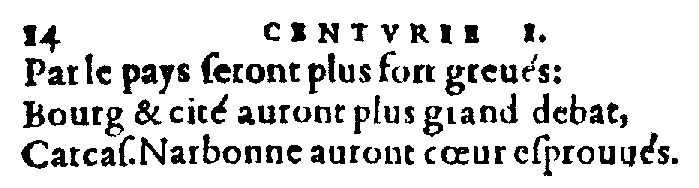 14 CENTVRIE I.
Par le pays ſeront plus fort greués:
Bourg & cité auront plus grand debat,
Carcaſ. Narbonne auront cœur eſprouués.